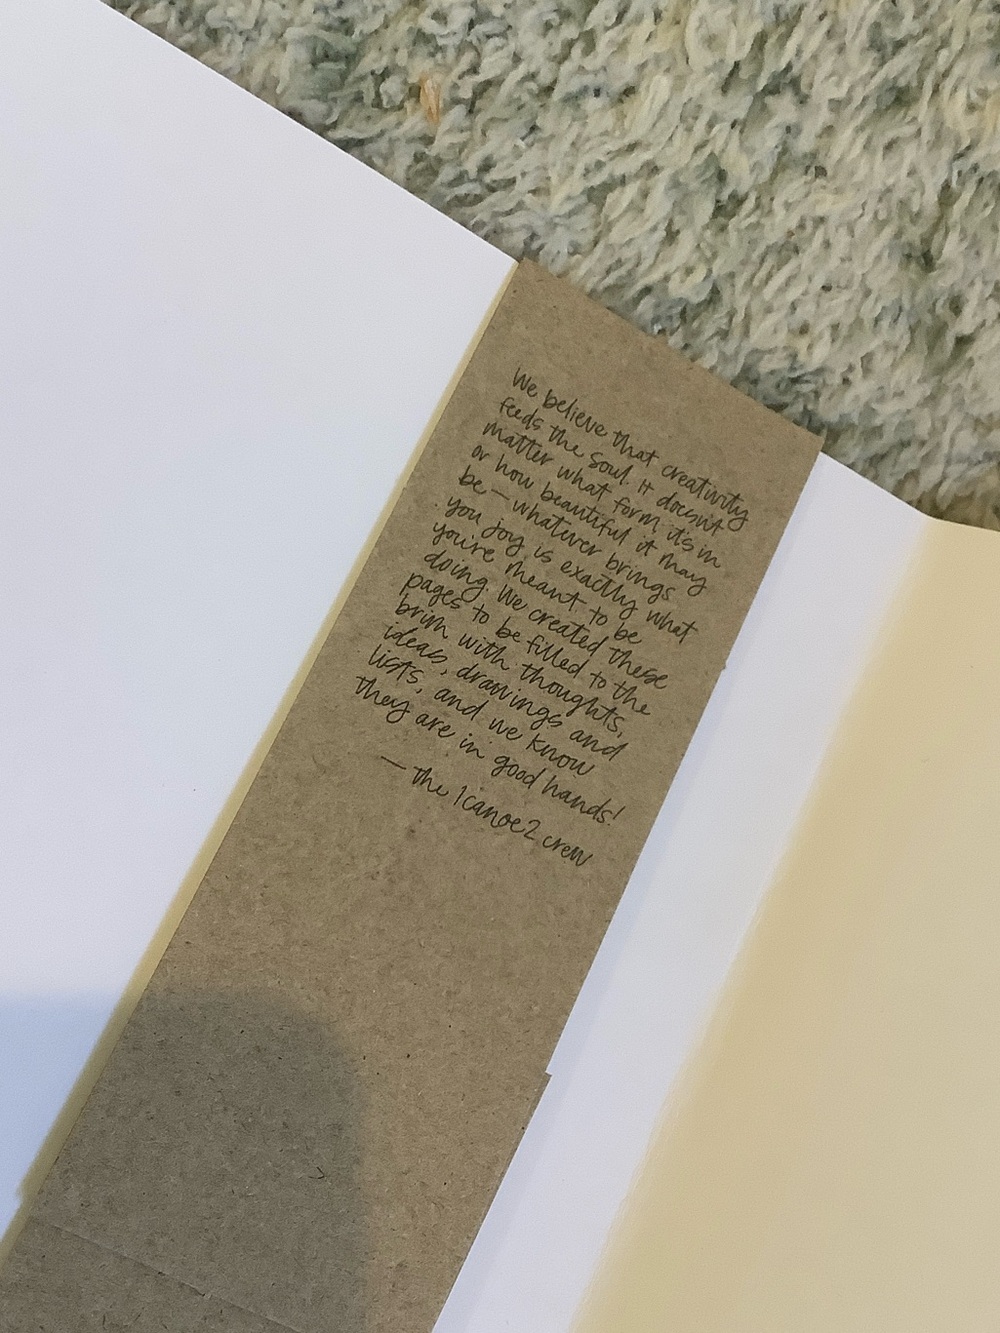 We believe that creativity
feeds the soul. It doesn't
matter what form it's in
or how beautiful it may
be — whatever brings
you joy is exactly what
you're meant to be
doing. We created these
pages to be filled to the
brim with thoughts,
ideas, drawings and
lists, and we know
they are in good hands!
— the 1canoe2 crew